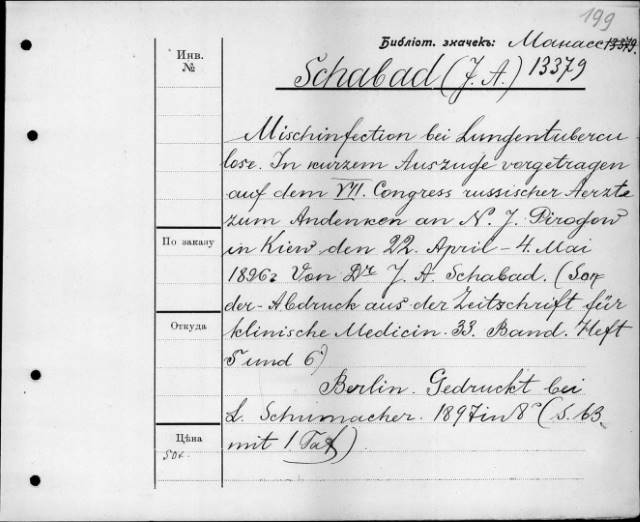 199
Библіот. значекъ: Манасс 13379.
Инв.
№
Schabad (J. A.) 13379
Mischinfection bei Lungentubercu
lose. In kurzem Auszuge vorgetragen
auf dem VII. Congress russischer Aerzte
zum Andenken an N. J. Pirogow
По заказу
in Kiew den 22. April - 4. Mai
1896. Von Dr J. A Schabad. (Son
der-Abdruck aus der Zeitschrift für
Откуда
klinische Medicin. 33. Band. Heft
5 und 6)
Berlin. Gedruckt bei
L. Schumacher. 1897 in 8° (S. 63
Цѣна
mit 1 Taf)
50к.